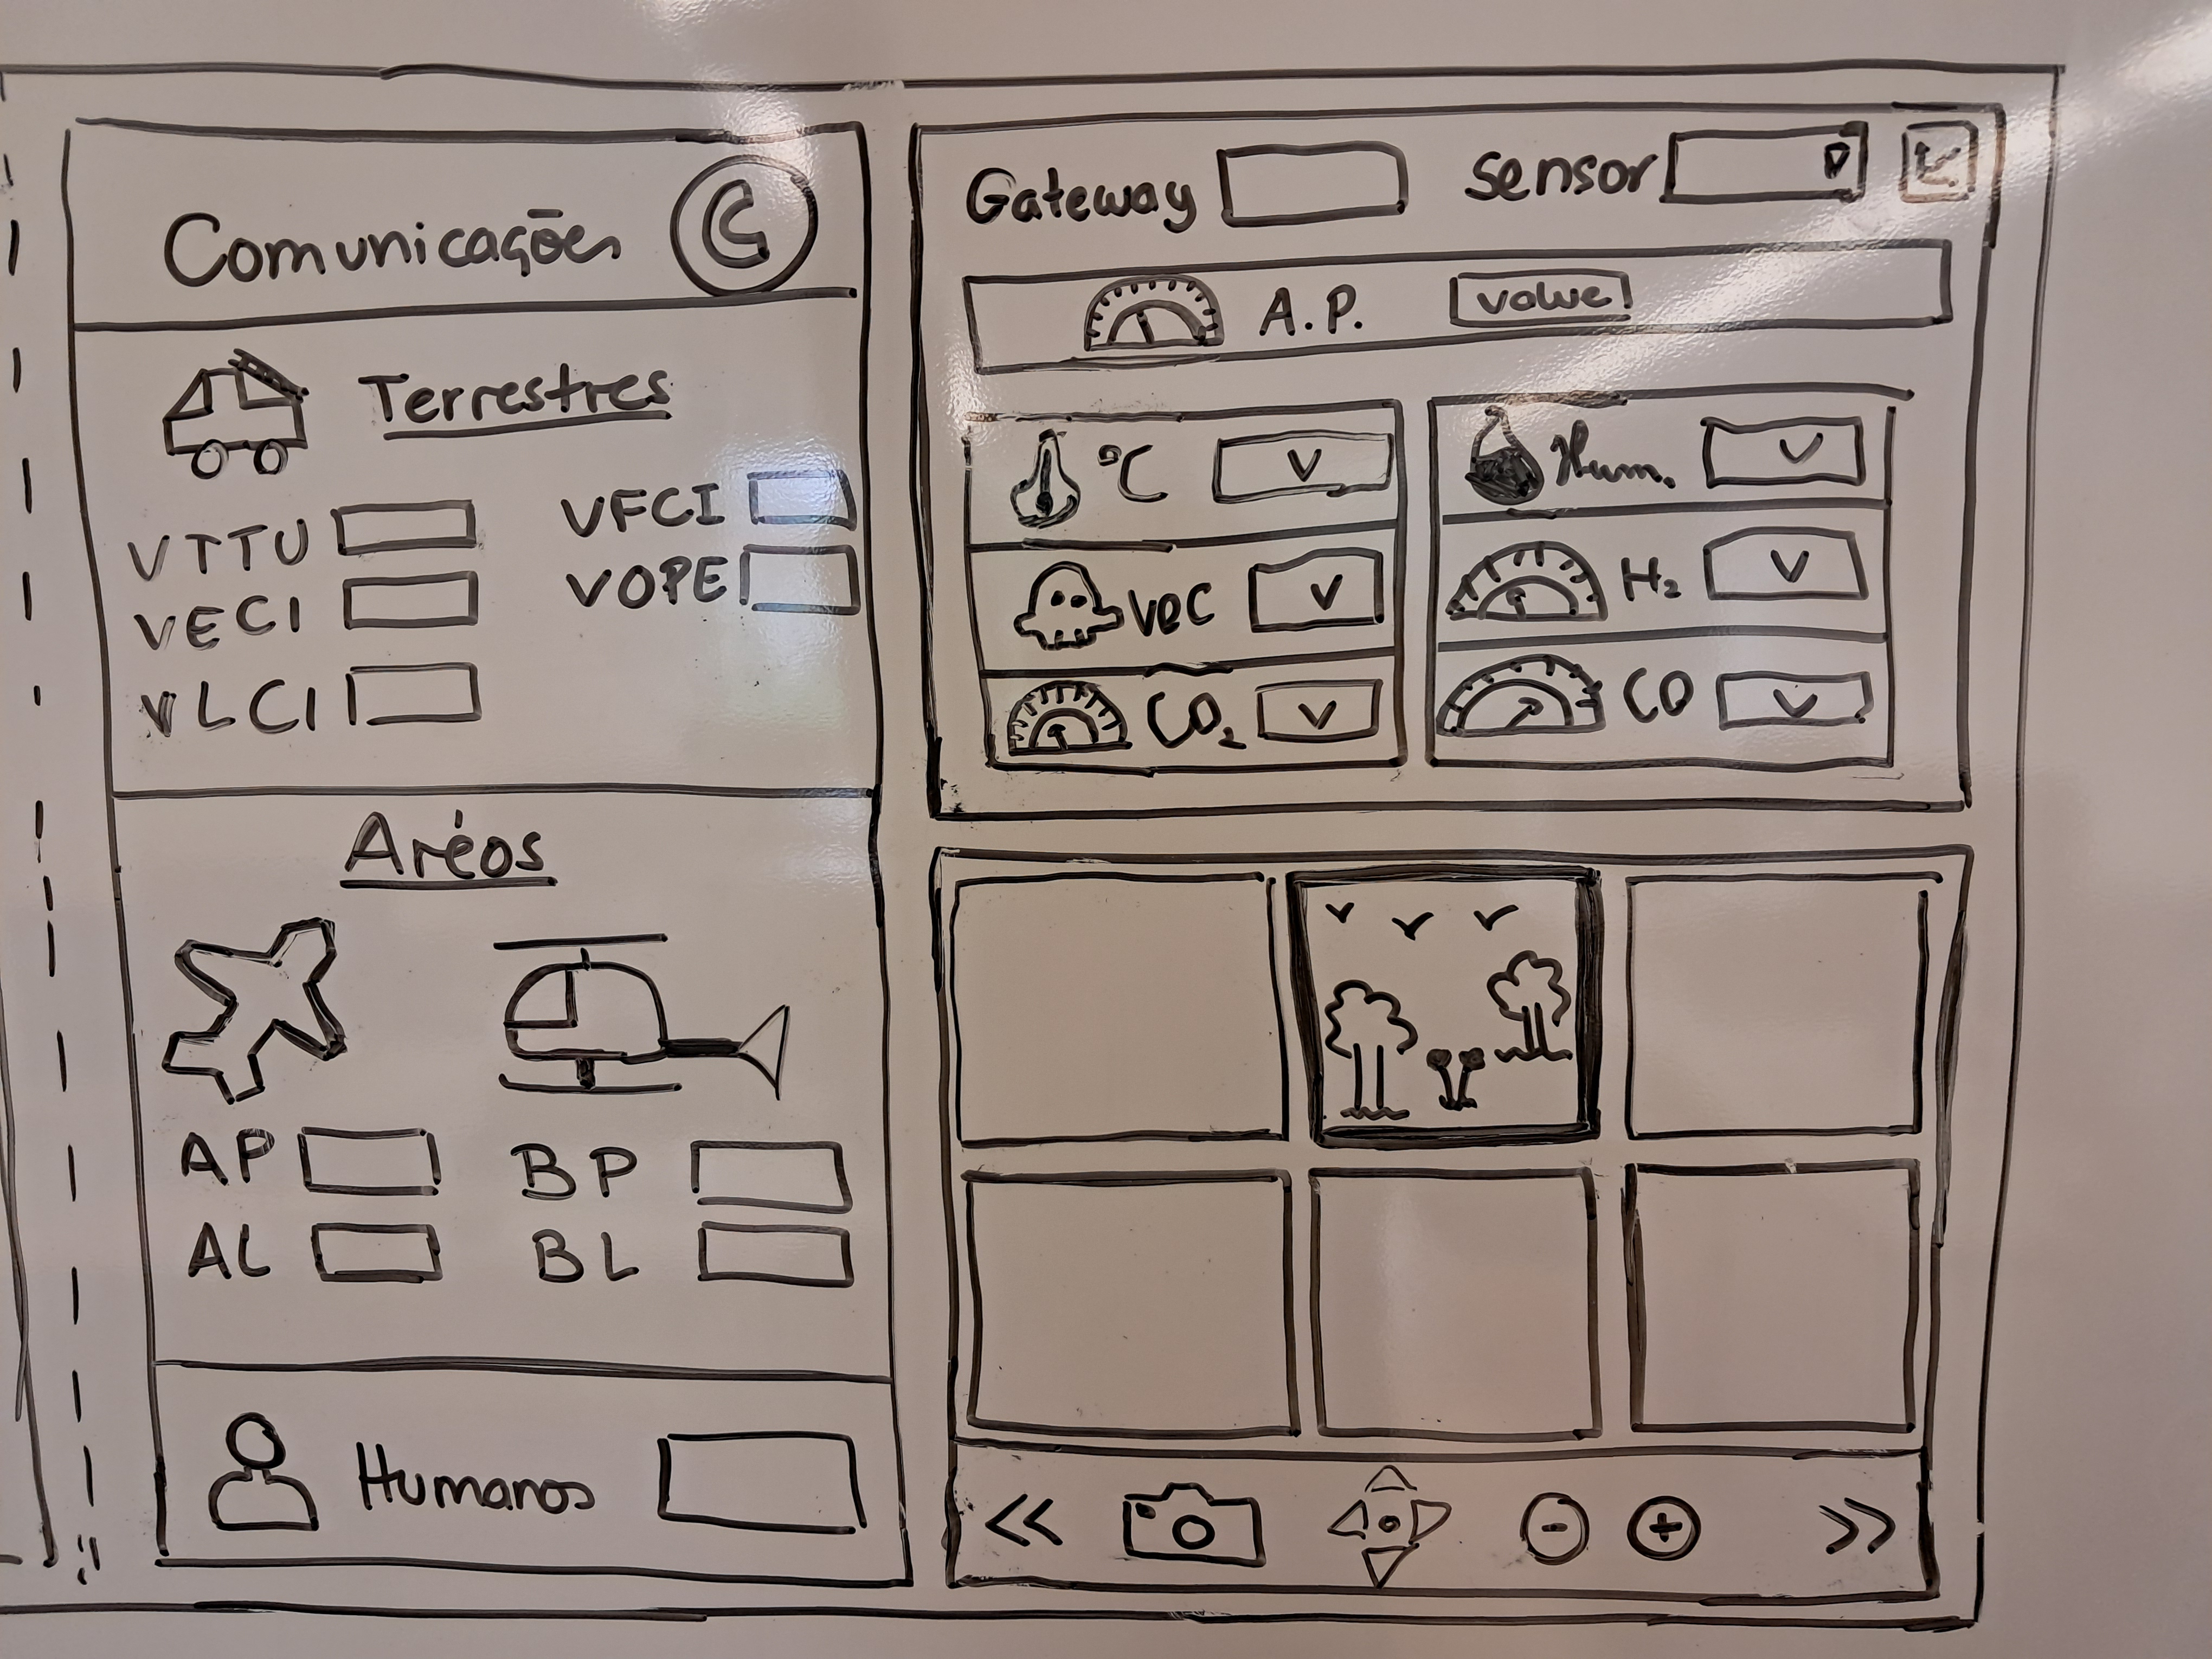 Comunicações C
Terrestres
VTTU
VECI
VLCI
VFCI
VOPE
Aréos
AP
BP
AL
BL
Humanos
Gateway
sensor
A.P.
value
°C V
VOC V
CO₂ V
Hum. V
H₂ V
CO V
<<
- +
>>